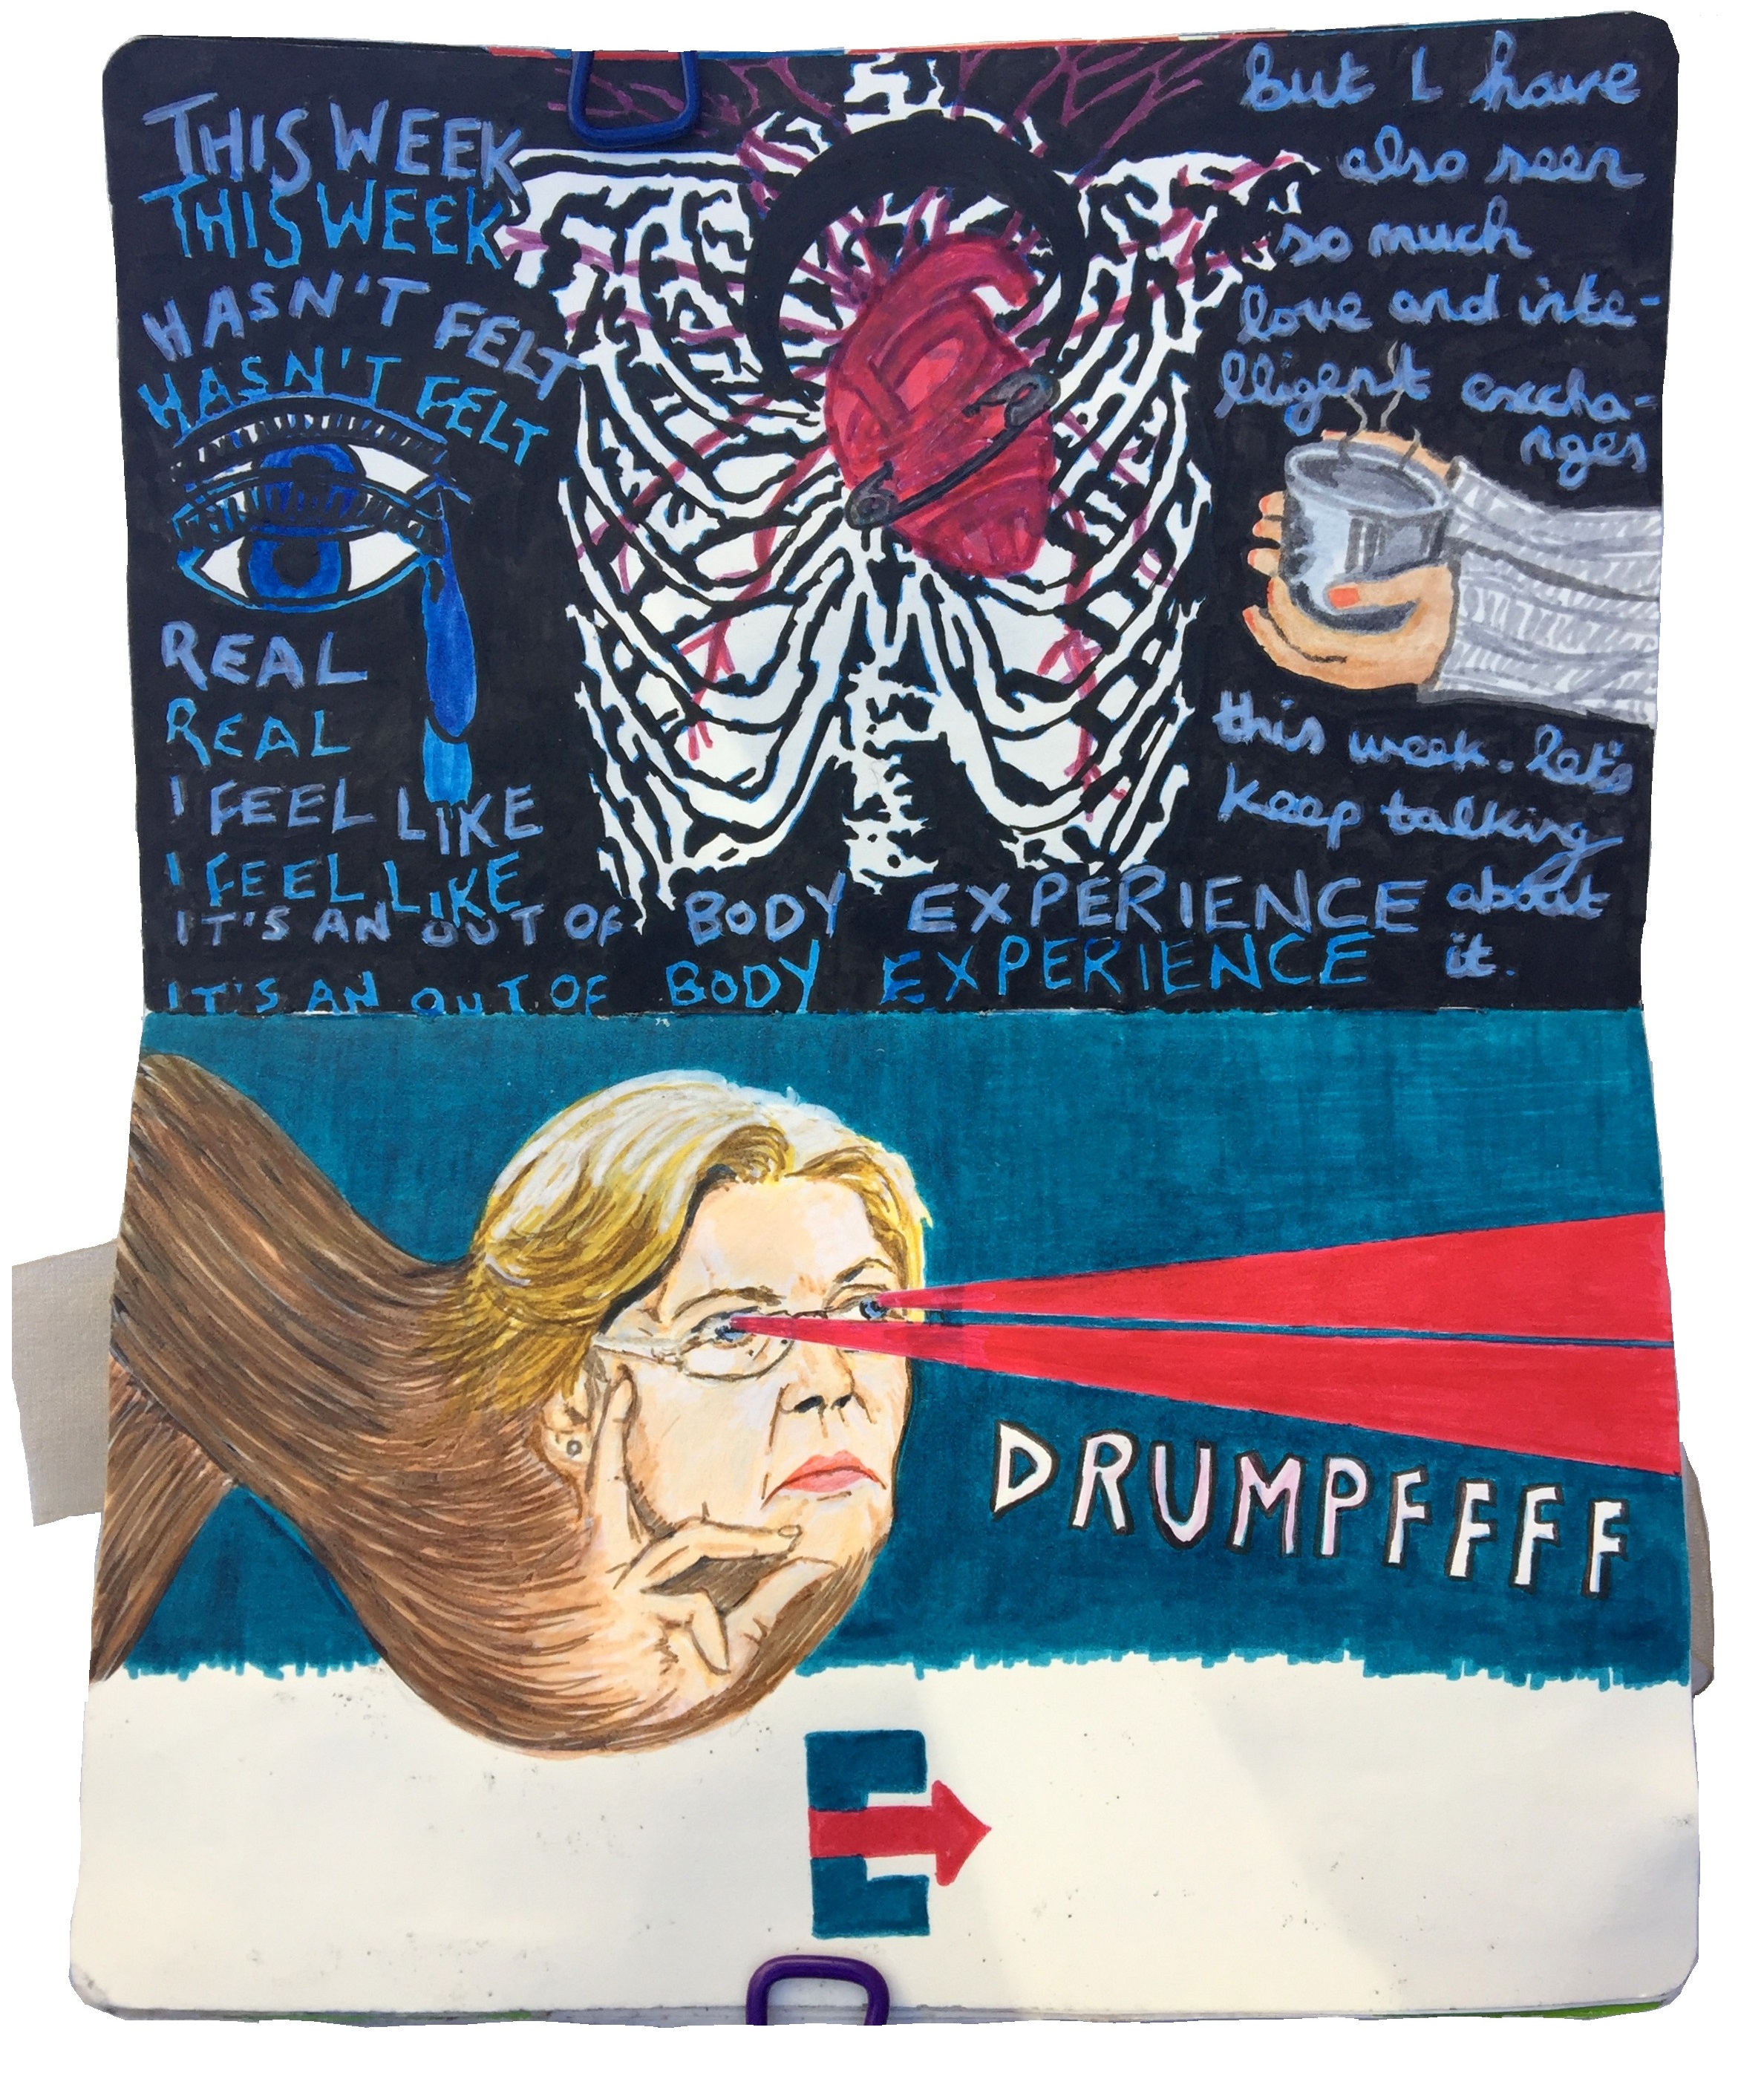 THIS WEEK
THIS WEEK
HASN'T FELT
HASN'T FELT
REAL
REAL
I FEEL LIKE
I FEEL LIKE
IT'S AN OUT OF BODY EXPERIENCE
IT'S AN OUT OF BODY EXPERIENCE
but I have
also seen
so much
love and inte-
lligent excha-
nges
this week. let's
keep talking
about
it.
DRUMPFFFF
E